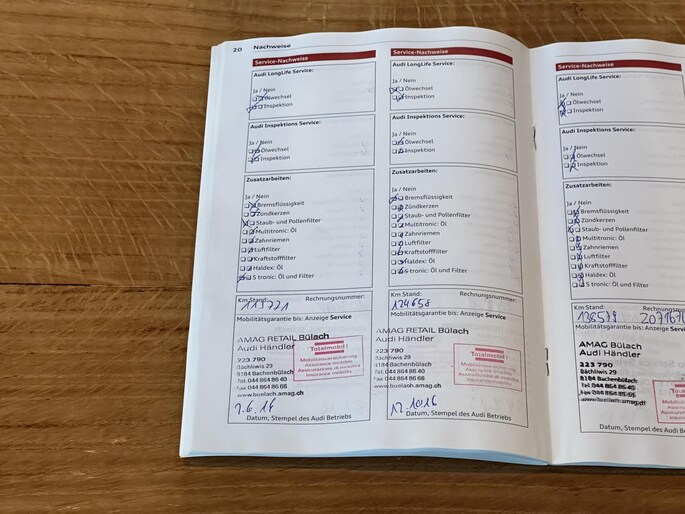 20 Nachweise
Service-Nachweise
Audi LongLife Service:
Ja / Nein
Ölwechsel
Inspektion
Audi Inspektions Service:
Ja / Nein
Ölwechsel
Inspektion
Zusatzarbeiten:
Ja / Nein
Bremsflüssigkeit
Zündkerzen
Staub- und Pollenfilter
Multitronic: Öl
Zahnriemen
Luftfilter
Kraftstofffilter
Haldex: Öl
S tronic: Öl und Filter
Km Stand: Rechnungsnummer:
113721
Mobilitätsgarantie bis: Anzeige Service
AMAG RETAIL Bülach
Audi Händler
223 790
Bächliwis 29
8184 Bachenbülach
Tel. 044 864 86 40
Fax 044 864 86 66
www.buelach.amag.ch
Totalmobil!
Mobilitätsversicherung
Assurance mobilité
Assicurazione di mobilità
Insurance mobility
Datum, Stempel des Audi Betriebs
Service-Nachweise
Audi LongLife Service:
Ja / Nein
Ölwechsel
Inspektion
Audi Inspektions Service:
Ja / Nein
Ölwechsel
Inspektion
Zusatzarbeiten:
Ja / Nein
Bremsflüssigkeit
Zündkerzen
Staub- und Pollenfilter
Multitronic: Öl
Zahnriemen
Luftfilter
Kraftstofffilter
Haldex: Öl
S tronic: Öl und Filter
Km Stand: Rechnungsnummer:
124658
Mobilitätsgarantie bis: Anzeige Service
AMAG RETAIL Bülach
Audi Händler
223 790
Bächliwis 29
8184 Bachenbülach
Tel. 044 864 86 40
Fax 044 864 86 66
www.buelach.amag.ch
Totalmobil!
12.10.16
Datum, Stempel des Audi Betriebs
Service-Nachweise
Audi LongLife Service:
Ja / Nein
Ölwechsel
Inspektion
Audi Inspektions Service:
Ja / Nein
Ölwechsel
Inspektion
Zusatzarbeiten:
Ja / Nein
Bremsflüssigkeit
Zündkerzen
Staub- und Pollenfilter
Multitronic: Öl
Zahnriemen
Luftfilter
Kraftstofffilter
Haldex: Öl
S tronic: Öl und Filter
Km Stand:
Mobilitätsgarantie bis: Anzeige
AMAG Bülach
Audi Händler
223 790
Bächliwis 29
8184 Bachenbülach
Datum, Stempel des Audi